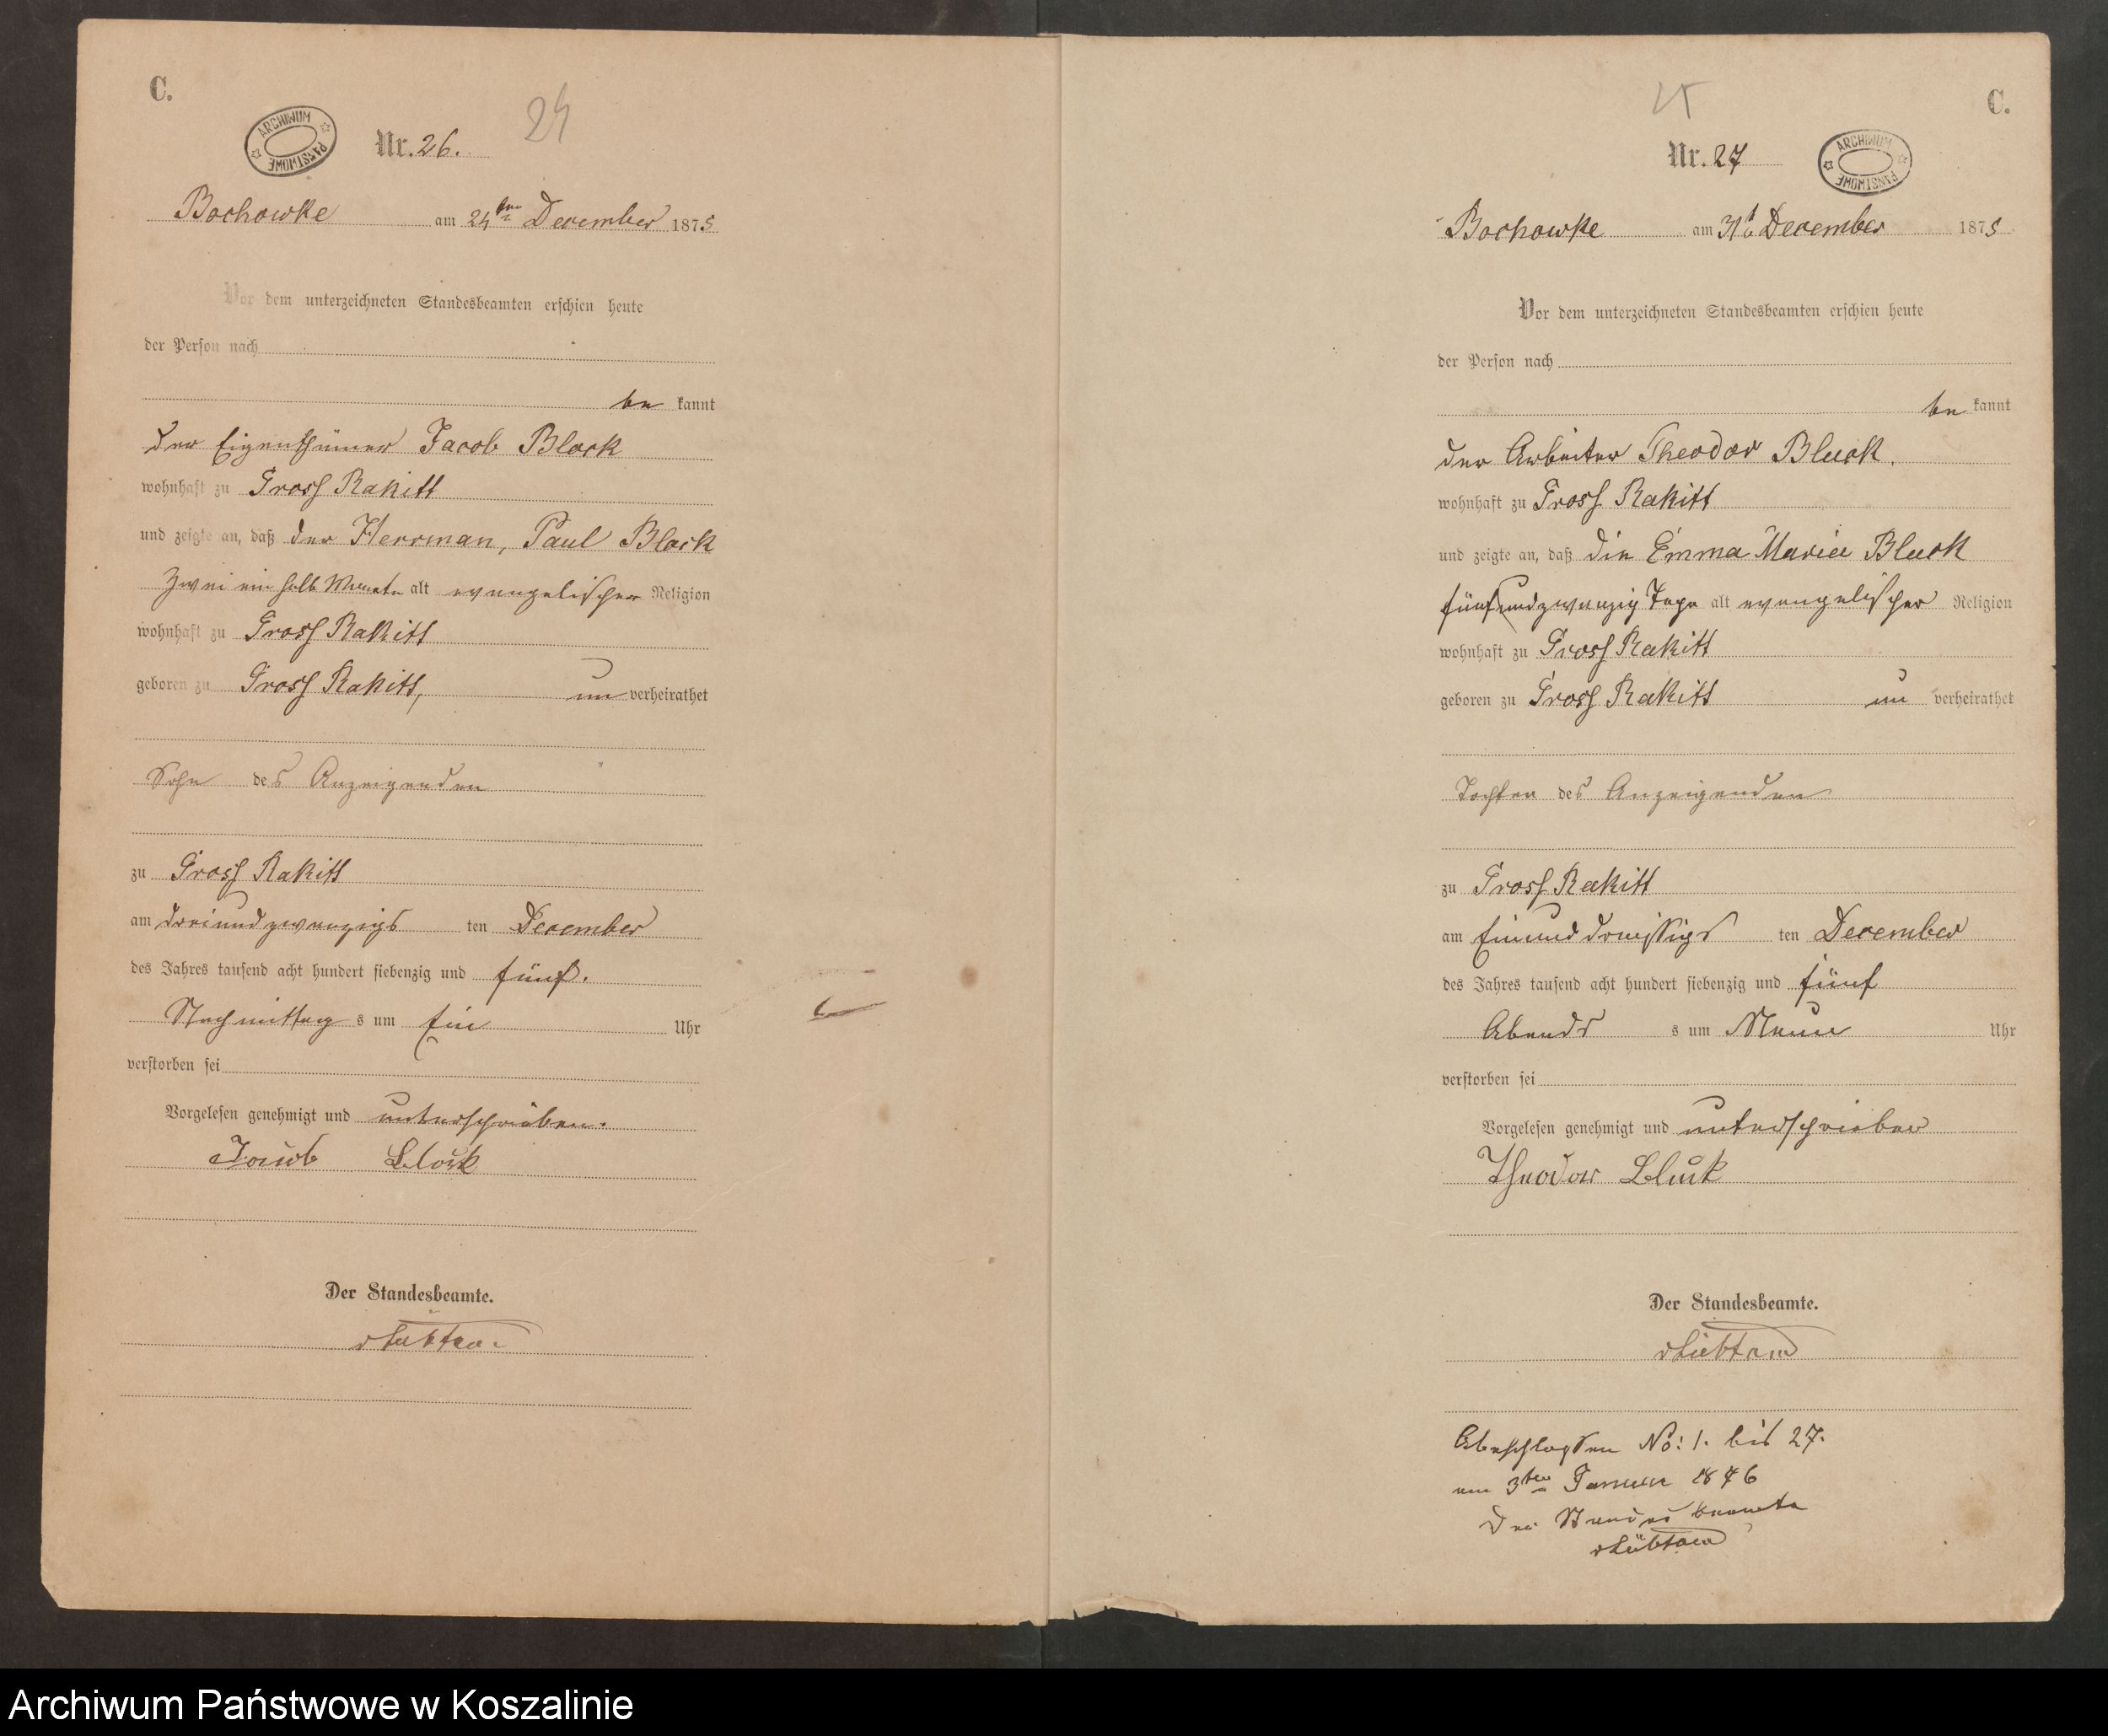 C.
24
ARCHIWUM PAŃSTWOWE
Nr. 26.
Bochowke am 24ten December 1875
Vor dem unterzeichneten Standesbeamten erschien heute
der Person nach
be kannt
der Eigenthümer Jacob Block
wohnhaft zu Gross Rakitt
und zeigte an, daß der Herrman, Paul Block
Zwei ein halb Monate alt evangelischer Religion
wohnhaft zu Gross Rakitt
geboren zu Gross Rakitt, un verheirathet
Sohn des Anzeigenden
zu Gross Rakitt
am dreiundzwanzigs ten December
des Jahres tausend acht hundert siebenzig und fünf.
Nachmittag s um Ein Uhr
verstorben sei
Vorgelesen genehmigt und unterschrieben.
Jacob Block
Der Standesbeamte.
C.
25
Nr. 27
ARCHIWUM PAŃSTWOWE
Bochowke am 31t December 1875
Vor dem unterzeichneten Standesbeamten erschien heute
der Person nach
be kannt
der Arbeiter Theodor Bluck.
wohnhaft zu Gross Rakitt
und zeigte an, daß die Emma Maria Bluck
fünfundzwanzig Tage alt evangelischer Religion
wohnhaft zu Gross Rakitt
geboren zu Gross Rakitt un verheirathet
Tochter des Anzeigenden
zu Gross Rakitt
am Einunddreissigs ten December
des Jahres tausend acht hundert siebenzig und fünf
Abends s um Neun Uhr
verstorben sei
Vorgelesen genehmigt und unterschrieben
Theodor Bluck
Der Standesbeamte.
vLübtow
Abeschlossen No: 1. bis 27.
am 3ten Januar 1876
Der Standesbeamte
vLübtow
Archiwum Państwowe w Koszalinie